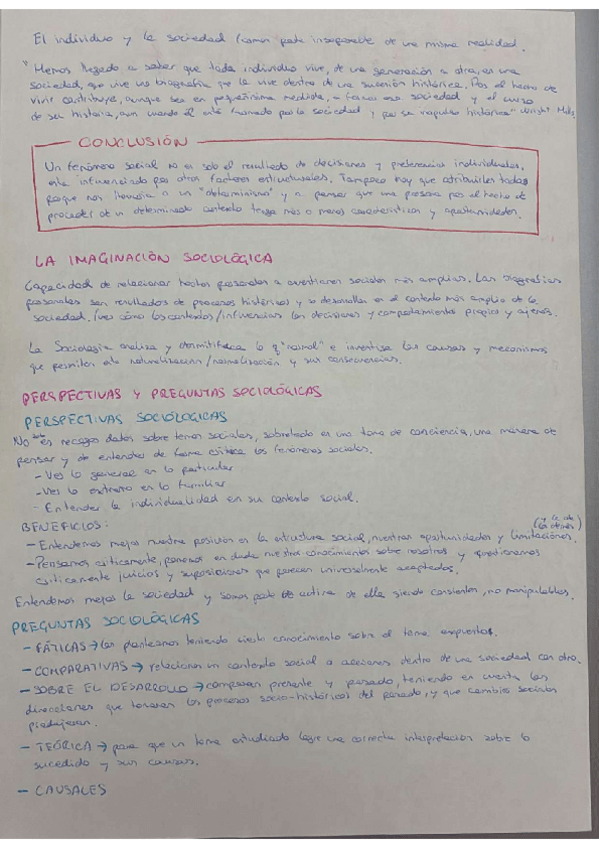 El individuo y la sociedad forman parte inseparable de una misma realidad.
"Hemos llegado a saber que todo individuo vive, de una generación a otra, en una
sociedad, que vive una biografía, que la vive dentro de una sucesión histórica. Por el hecho de
vivir contribuye, aunque sea en pequeñísima medida, a formar esa sociedad y el curso
de su historia, aun cuando él está formado por la sociedad y por su impulso histórico" Wright Mills
CONCLUSIÓN
Un fenómeno social no es solo el resultado de decisiones y preferencias individuales,
está influenciado por otros factores estructurales. Tampoco hay que atribuirles todas
porque nos llevaría a un "determinismo" y a pensar que una persona por el hecho de
proceder de un determinado contexto tenga más o menos características y oportunidades.
LA IMAGINACIÓN SOCIOLÓGICA
Capacidad de relacionar hechos personales a cuestiones sociales más amplias. Las biografías
personales son resultados de procesos históricos y se desarrollan en el contexto más amplio de la
sociedad. Ives cómo los contextos/influencias las decisiones y comportamientos propios y ajenos.
La Sociología analiza y desmitifica lo q "normal" e investiga las causas y mecanismos
que permiten esta naturalización/normalización y sus consecuencias.
PERSPECTIVAS Y PREGUNTAS SOCIOLÓGICAS
PERSPECTIVAS SOCIOLOGICAS
No solo es recoger datos sobre temas sociales, sobretodo es una toma de conciencia, una manera de
pensar y de entender de forma crítica los fenómenos sociales.
- Ver lo general en lo particular
- Ver lo extraño en lo familiar
- Entender la individualidad en su contexto social.
BENEFICIOS:
(y la de los demás)
- Entendemos mejor nuestra posición en la estructura social, nuestras oportunidades y limitaciones.
- Pensamos críticamente, ponemos en duda nuestros conocimientos sobre nosotros y cuestionamos
críticamente juicios y suposiciones que parecen universalmente aceptados.
Entendemos mejor la sociedad y somos parte activa de ella siendo conscientes, no manipulables.
PREGUNTAS SOCIOLÓGICAS
- FÁTICAS → las planteamos teniendo cierto conocimiento sobre el tema expuesto.
- COMPARATIVAS → relacionan un contexto social o acciones dentro de una sociedad con otro.
- SOBRE EL DESARROLLO → comparan presente y pasado, teniendo en cuenta las
direcciones que tomaron los procesos socio-históricos del pasado, y que cambios sociales
produjeron.
- TEÓRICA → para que un tema estudiado logre una correcta interpretación sobre lo
sucedido y sus causas.
- CAUSALES